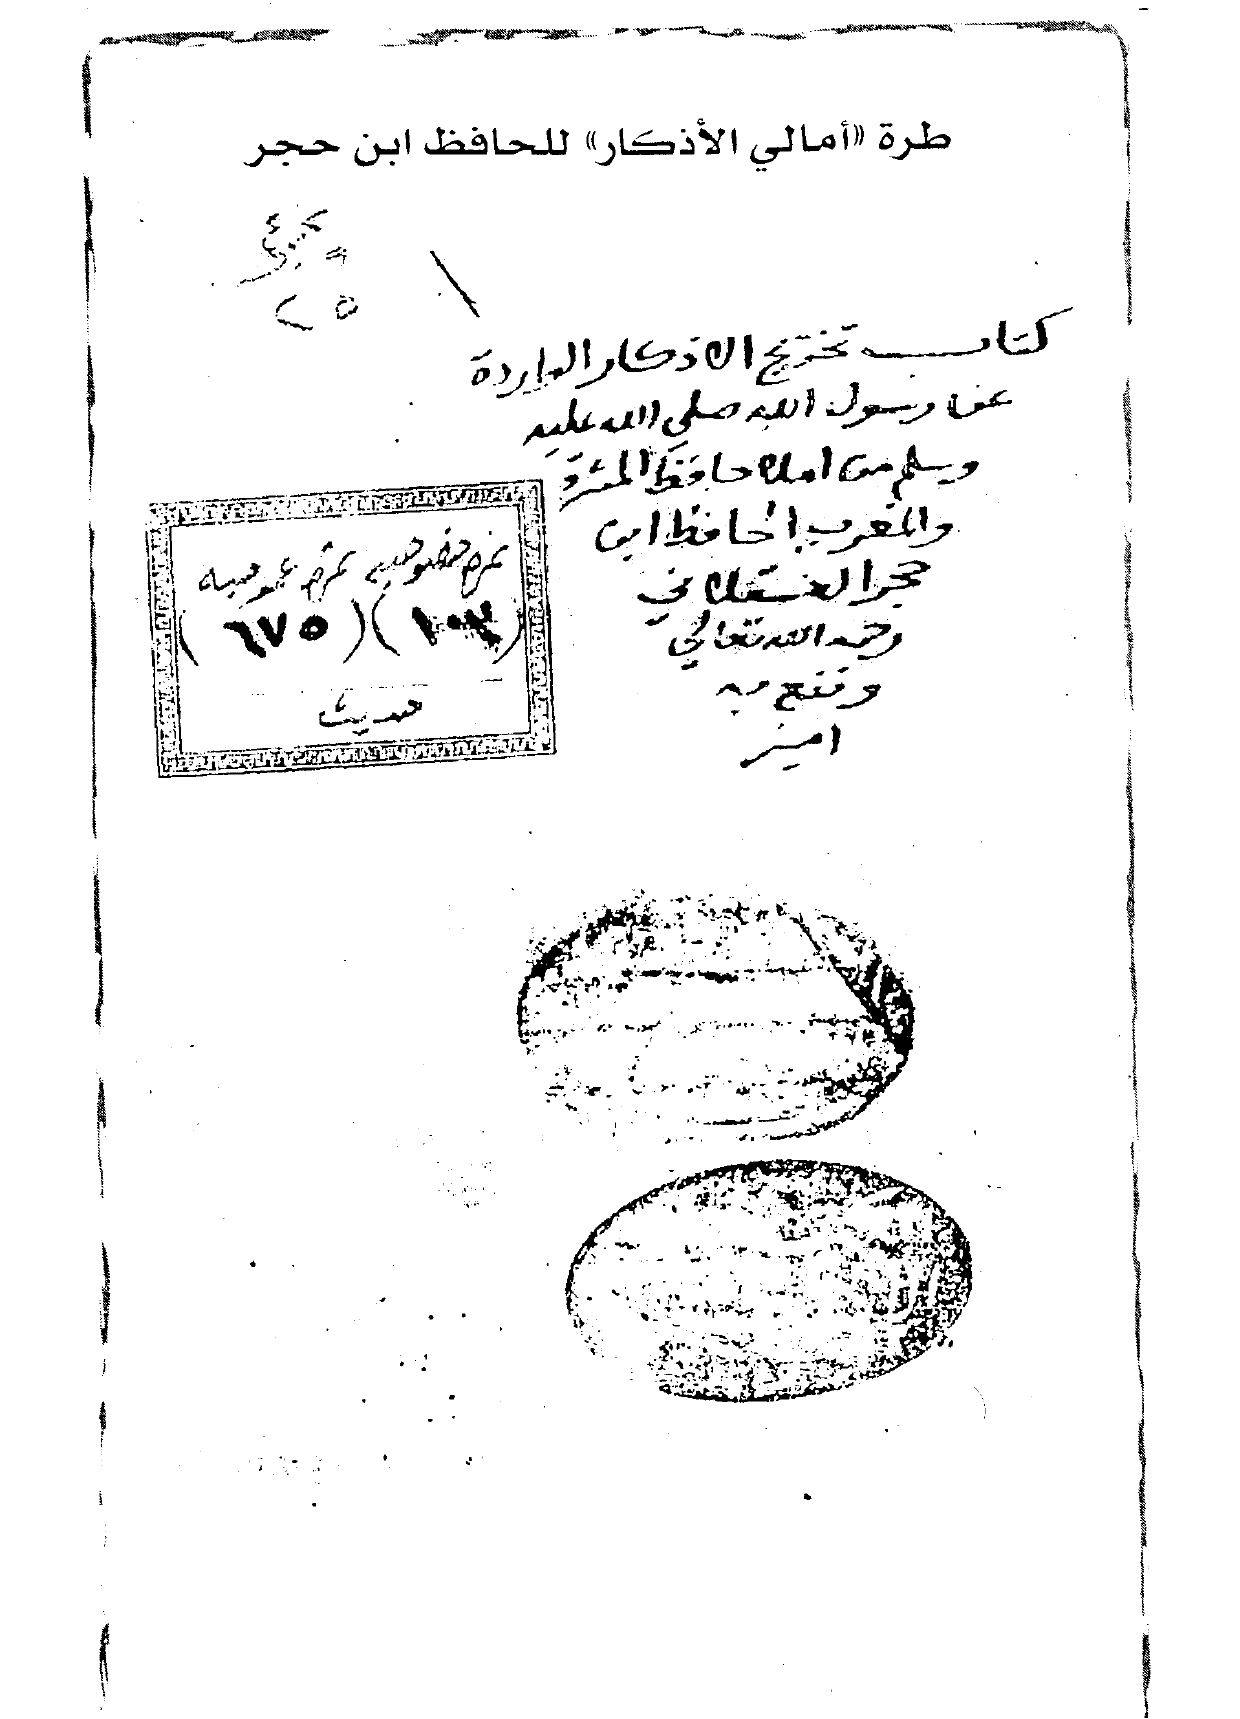 طرة «أمالي الأذكار» للحافظ ابن حجر
كتاب تخريج الاذكار الواردة
عن رسول الله صلى الله عليه
وسلم من املاء حافظ المشرق
والمغرب الحافظ ابن
حجر العسقلاني
رحمه الله تعالى
ونفع به
امين
نمره خصوصيه نمره عموميه
(١٠٣) (٦٧٥)
حديث